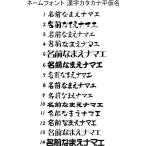 ネームフォント 漢字カタカナ平仮名
1 名前なまえナマエ
2 名前なまえナマエ
3 名前なまえナマエ
4 名前なまえナマエ
5 名前なまえナマエ
6 名前なまえナマエ
7 名前なまえナマエ
8 名前なまえナマエ
9 名前なまえナマエ
10 名前なまえナマエ
11 名前なまえナマエ
12 名前なまえナマエ
13 名前なまえナマエ
14 名前なまえナマエ